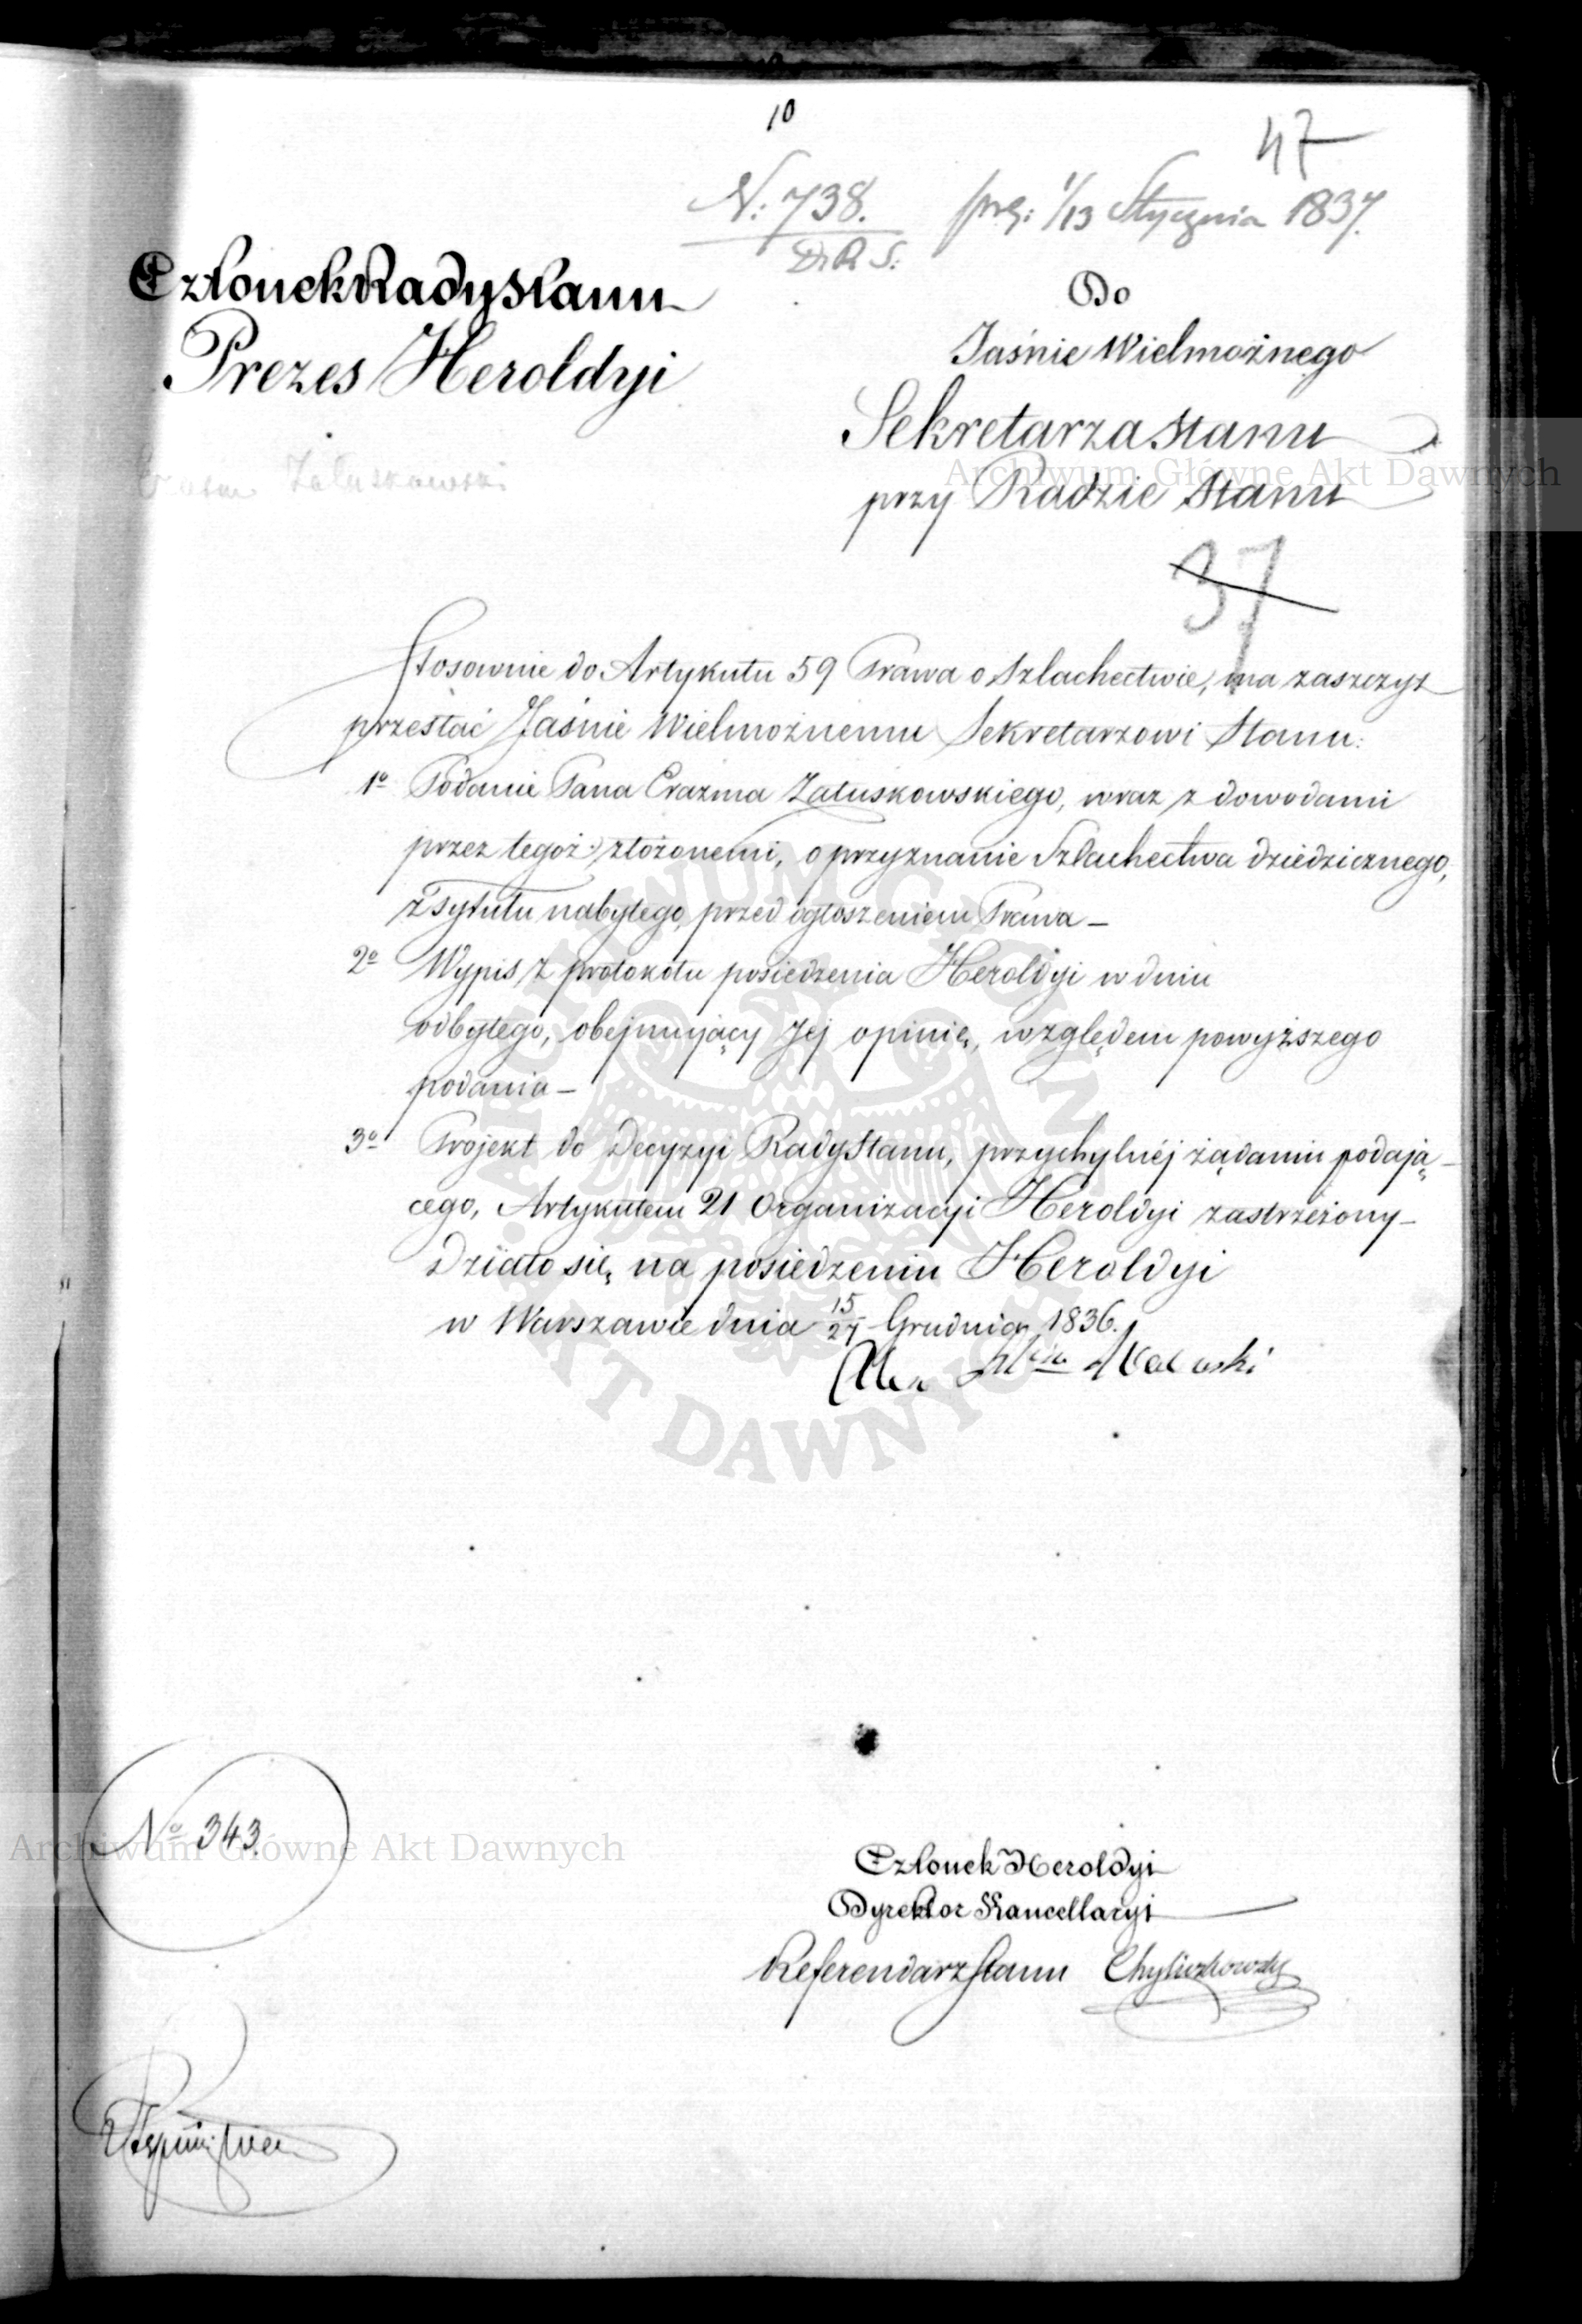 10
47
N: 738. prez: 1/13 Stycznia 1837.
D. R. S.
Członek Rady Stanu
Prezes Heroldyi
Do
Jaśnie Wielmożnego
Sekretarza Stanu
przy Radzie Stanu
Załuskowski
37
Stosownie do Artykułu 59 Prawa o Szlachectwie, ma zaszczyt
przesłać Jaśnie Wielmożnemu Sekretarzowi Stanu:
1o Podanie Pana Erazma Załuskowskiego, wraz z dowodami
przez tegoż złożonemi, o przyznanie Szlachectwa dziedzicznego,
z Tytułu nabytego, przed ogłoszeniem Prawa –
2o Wypis z protokółu posiedzenia Heroldyi w dniu
odbytego, obejmujący Jej opinię, względem powyższego
podania –
3o Projekt do Decyzyi Rady Stanu, przychylnéj żądaniu podają-
cego, Artykułem 21 Organizacyi Heroldyi zastrzeżony –
Działo się na posiedzeniu Heroldyi
w Warszawie dnia 15/27 Grudnia 1836.
No 343.
Członek Heroldyi
Dyrektor Kancellaryi
Referendarz Stanu Chyliczkowski
Archiwum Główne Akt Dawnych
Archiwum Główne Akt Dawnych
ARCHIWUM GŁÓWNE AKT DAWNYCH